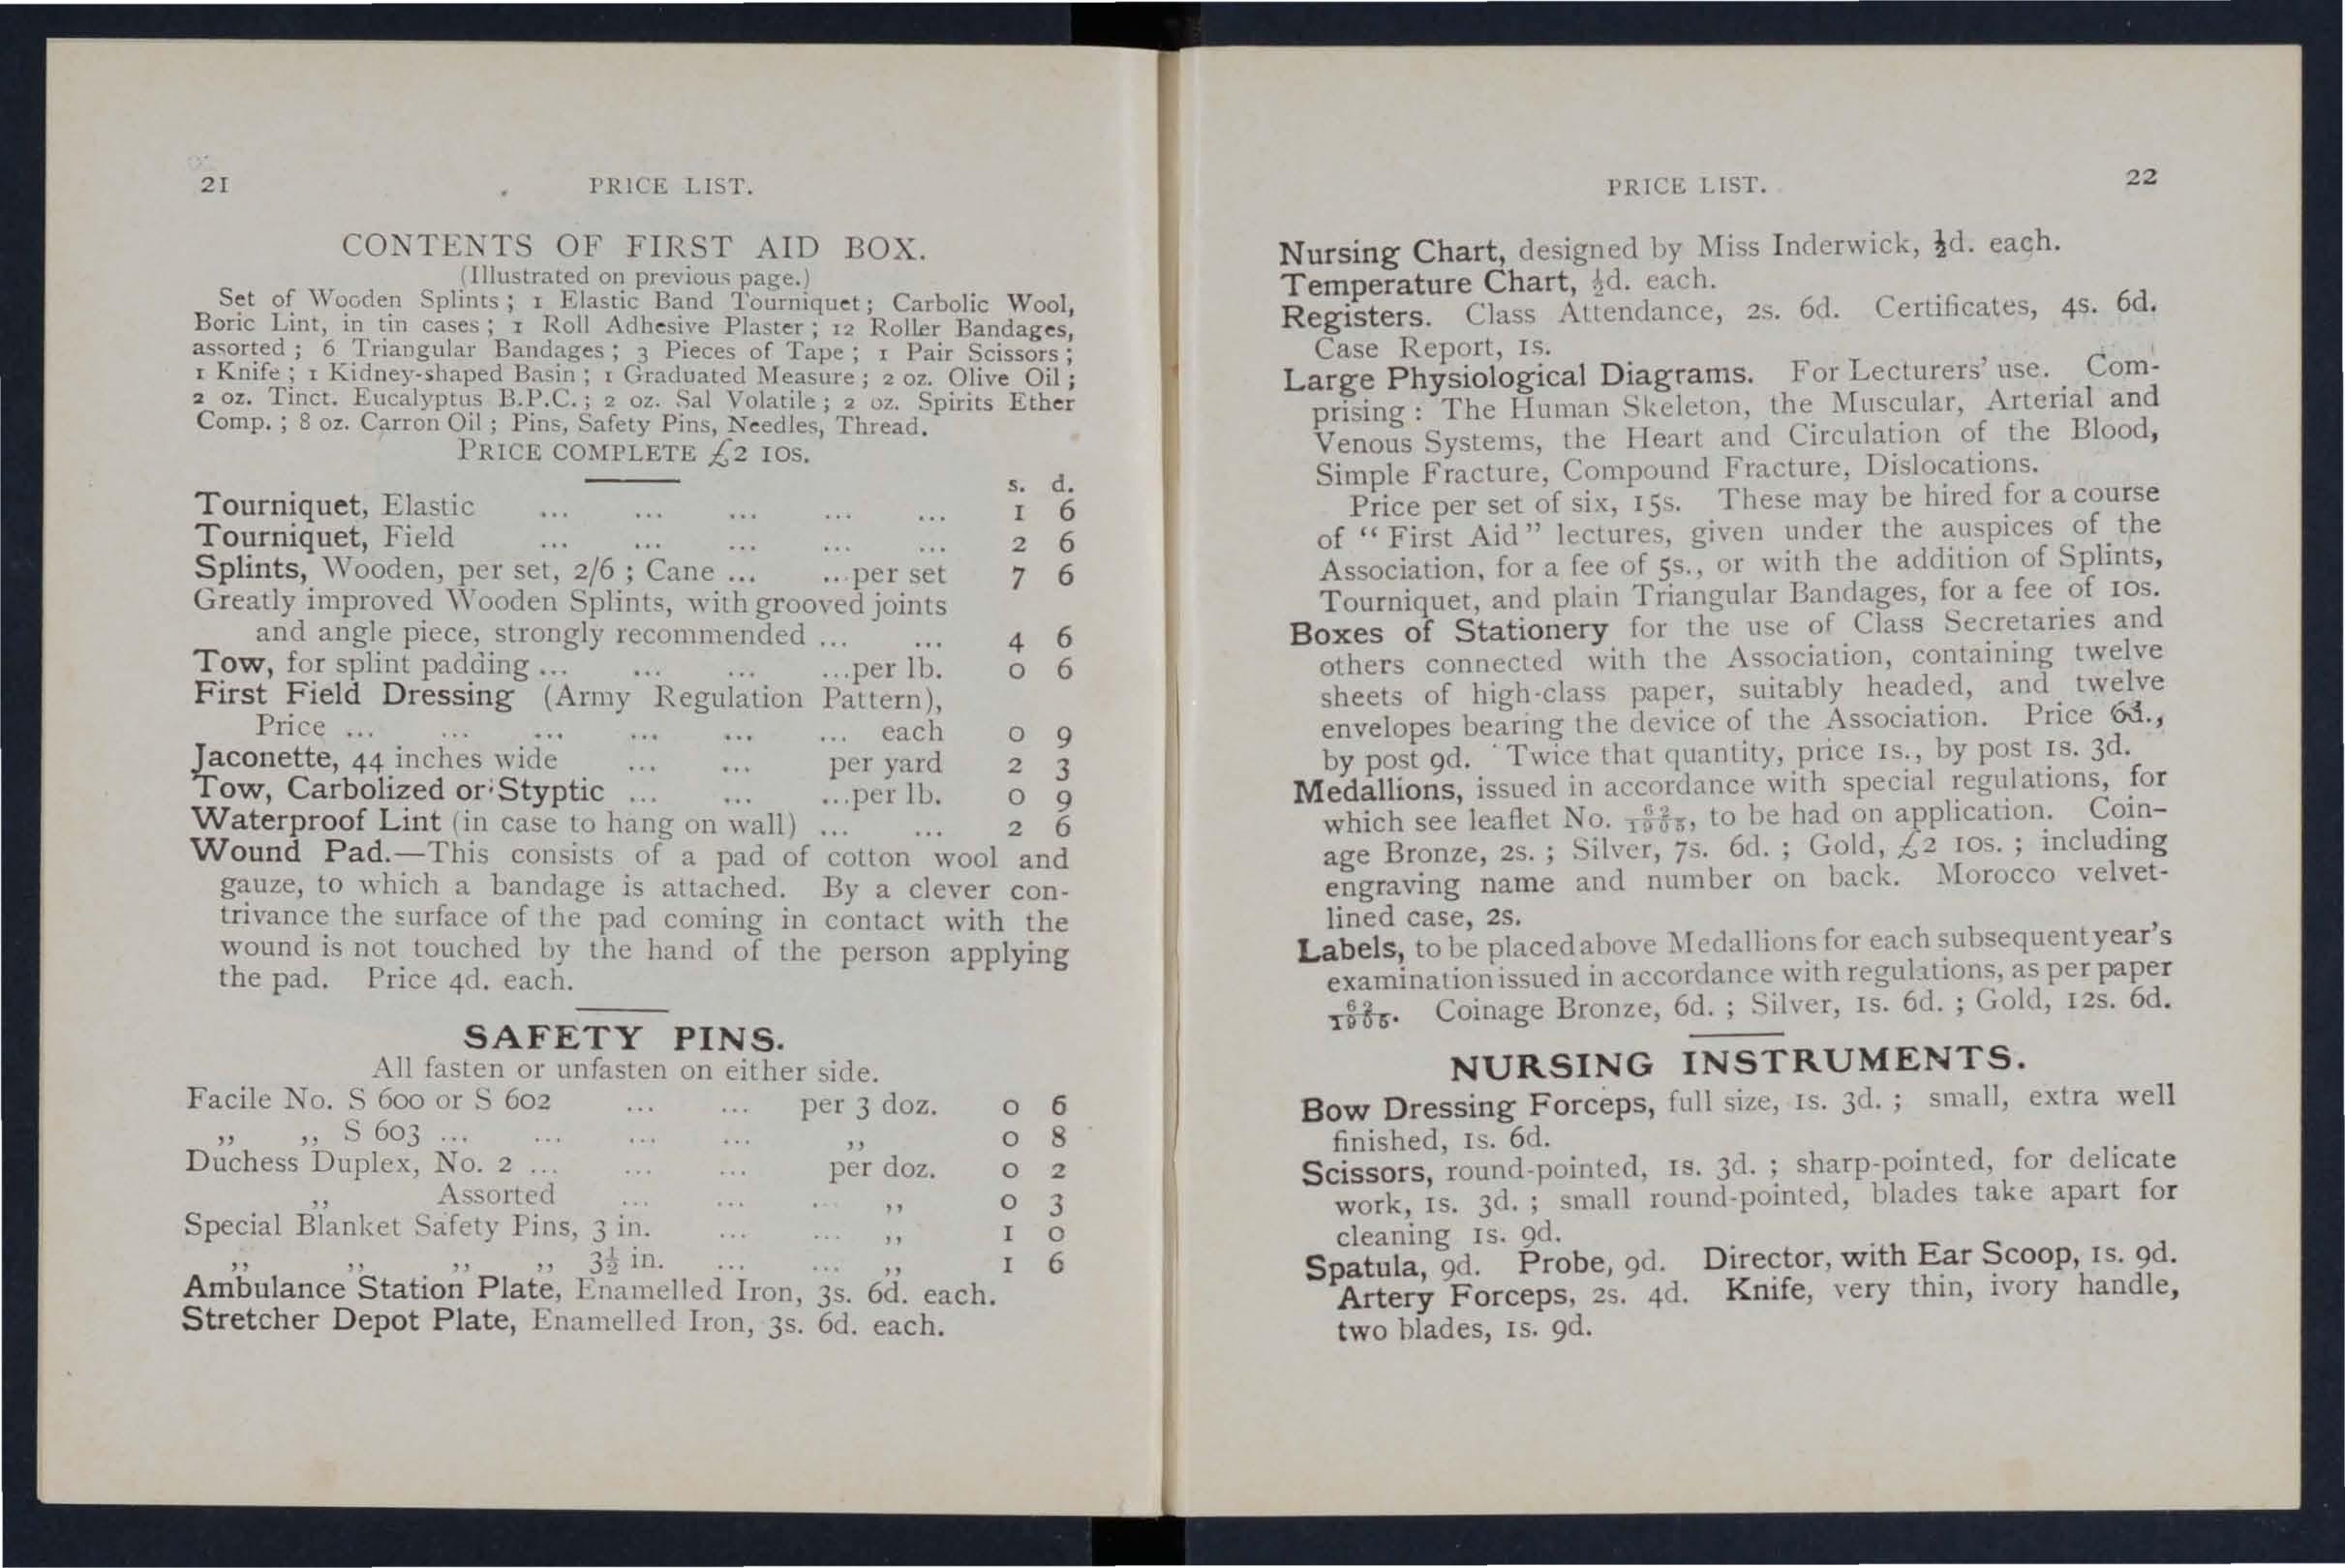 21 PRICE LIST.
CONTENTS OF FIRST AID BOX.
(Illustrated on previous page.)
Set of Wooden Splints ; 1 Elastic Band Tourniquet ; Carbolic Wool,
Boric Lint, in tin cases ; 1 Roll Adhesive Plaster ; 12 Roller Bandages,
assorted ; 6 Triangular Bandages ; 3 Pieces of Tape ; 1 Pair Scissors ;
1 Knife ; 1 Kidney-shaped Basin ; 1 Graduated Measure ; 2 oz. Olive Oil ;
2 oz. Tinct. Eucalyptus B.P.C. ; 2 oz. Sal Volatile ; 2 oz. Spirits Ether
Comp. ; 8 oz. Carron Oil ; Pins, Safety Pins, Needles, Thread.
PRICE COMPLETE £2 10s.
s. d.
Tourniquet, Elastic ... ... ... ... ... 1 6
Tourniquet, Field ... ... ... ... ... 2 6
Splints, Wooden, per set, 2/6 ; Cane ... ...per set 7 6
Greatly improved Wooden Splints, with grooved joints
and angle piece, strongly recommended ... ... 4 6
Tow, for splint padding ... ... ... ...per lb. 0 6
First Field Dressing (Army Regulation Pattern),
Price ... ... ... ... ... ... each 0 9
Jaconette, 44 inches wide ... ... per yard 2 3
Tow, Carbolized or Styptic ... ... ...per lb. 0 9
Waterproof Lint (in case to hang on wall) ... ... 2 6
Wound Pad.—This consists of a pad of cotton wool and
gauze, to which a bandage is attached. By a clever con-
trivance the surface of the pad coming in contact with the
wound is not touched by the hand of the person applying
the pad. Price 4d. each.
SAFETY PINS.
All fasten or unfasten on either side.
Facile No. S 600 or S 602 ... ... per 3 doz. 0 6
,, ,, S 603 ... ... ... ... ,, 0 8
Duchess Duplex, No. 2 ... ... ... per doz. 0 2
,, Assorted ... ... ... ,, 0 3
Special Blanket Safety Pins, 3 in. ... ... ,, 1 0
,, ,, ,, ,, 3½ in. ... ... ,, 1 6
Ambulance Station Plate, Enamelled Iron, 3s. 6d. each.
Stretcher Depot Plate, Enamelled Iron, 3s. 6d. each.
PRICE LIST. 22
Nursing Chart, designed by Miss Inderwick, ½d. each.
Temperature Chart, ½d. each.
Registers. Class Attendance, 2s. 6d. Certificates, 4s. 6d.
Case Report, 1s.
Large Physiological Diagrams. For Lecturers' use. Com-
prising : The Human Skeleton, the Muscular, Arterial and
Venous Systems, the Heart and Circulation of the Blood,
Simple Fracture, Compound Fracture, Dislocations.
Price per set of six, 15s. These may be hired for a course
of "First Aid" lectures, given under the auspices of the
Association, for a fee of 5s., or with the addition of Splints,
Tourniquet, and plain Triangular Bandages, for a fee of 10s.
Boxes of Stationery for the use of Class Secretaries and
others connected with the Association, containing twelve
sheets of high-class paper, suitably headed, and twelve
envelopes bearing the device of the Association. Price 6d.,
by post 9d. Twice that quantity, price 1s., by post 1s. 3d.
Medallions, issued in accordance with special regulations, for
which see leaflet No. 62/1905, to be had on application. Coin-
age Bronze, 2s. ; Silver, 7s. 6d. ; Gold, £2 10s. ; including
engraving name and number on back. Morocco velvet-
lined case, 2s.
Labels, to be placed above Medallions for each subsequent year's
examination issued in accordance with regulations, as per paper
62/1905. Coinage Bronze, 6d. ; Silver, 1s. 6d. ; Gold, 12s. 6d.
NURSING INSTRUMENTS.
Bow Dressing Forceps, full size, 1s. 3d. ; small, extra well
finished, 1s. 6d.
Scissors, round-pointed, 1s. 3d. ; sharp-pointed, for delicate
work, 1s. 3d. ; small round-pointed, blades take apart for
cleaning 1s. 9d.
Spatula, 9d. Probe, 9d. Director, with Ear Scoop, 1s. 9d.
Artery Forceps, 2s. 4d. Knife, very thin, ivory handle,
two blades, 1s. 9d.